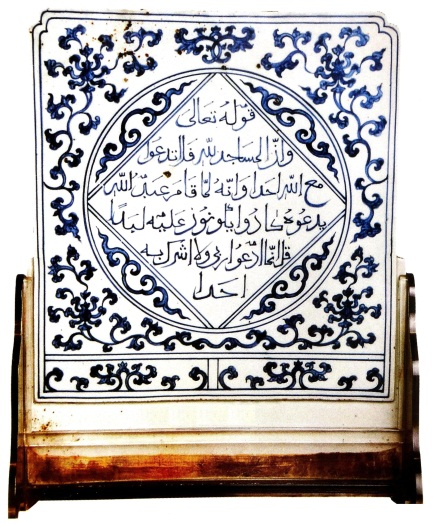 قوله تعالى
وان المساجد لله فلا تدعوا
مع الله احدا وانه لما قام عبد الله
يدعوه كادوا يكونون عليه لبدا
قل انما ادعوا ربى ولا اشرك به
احدا